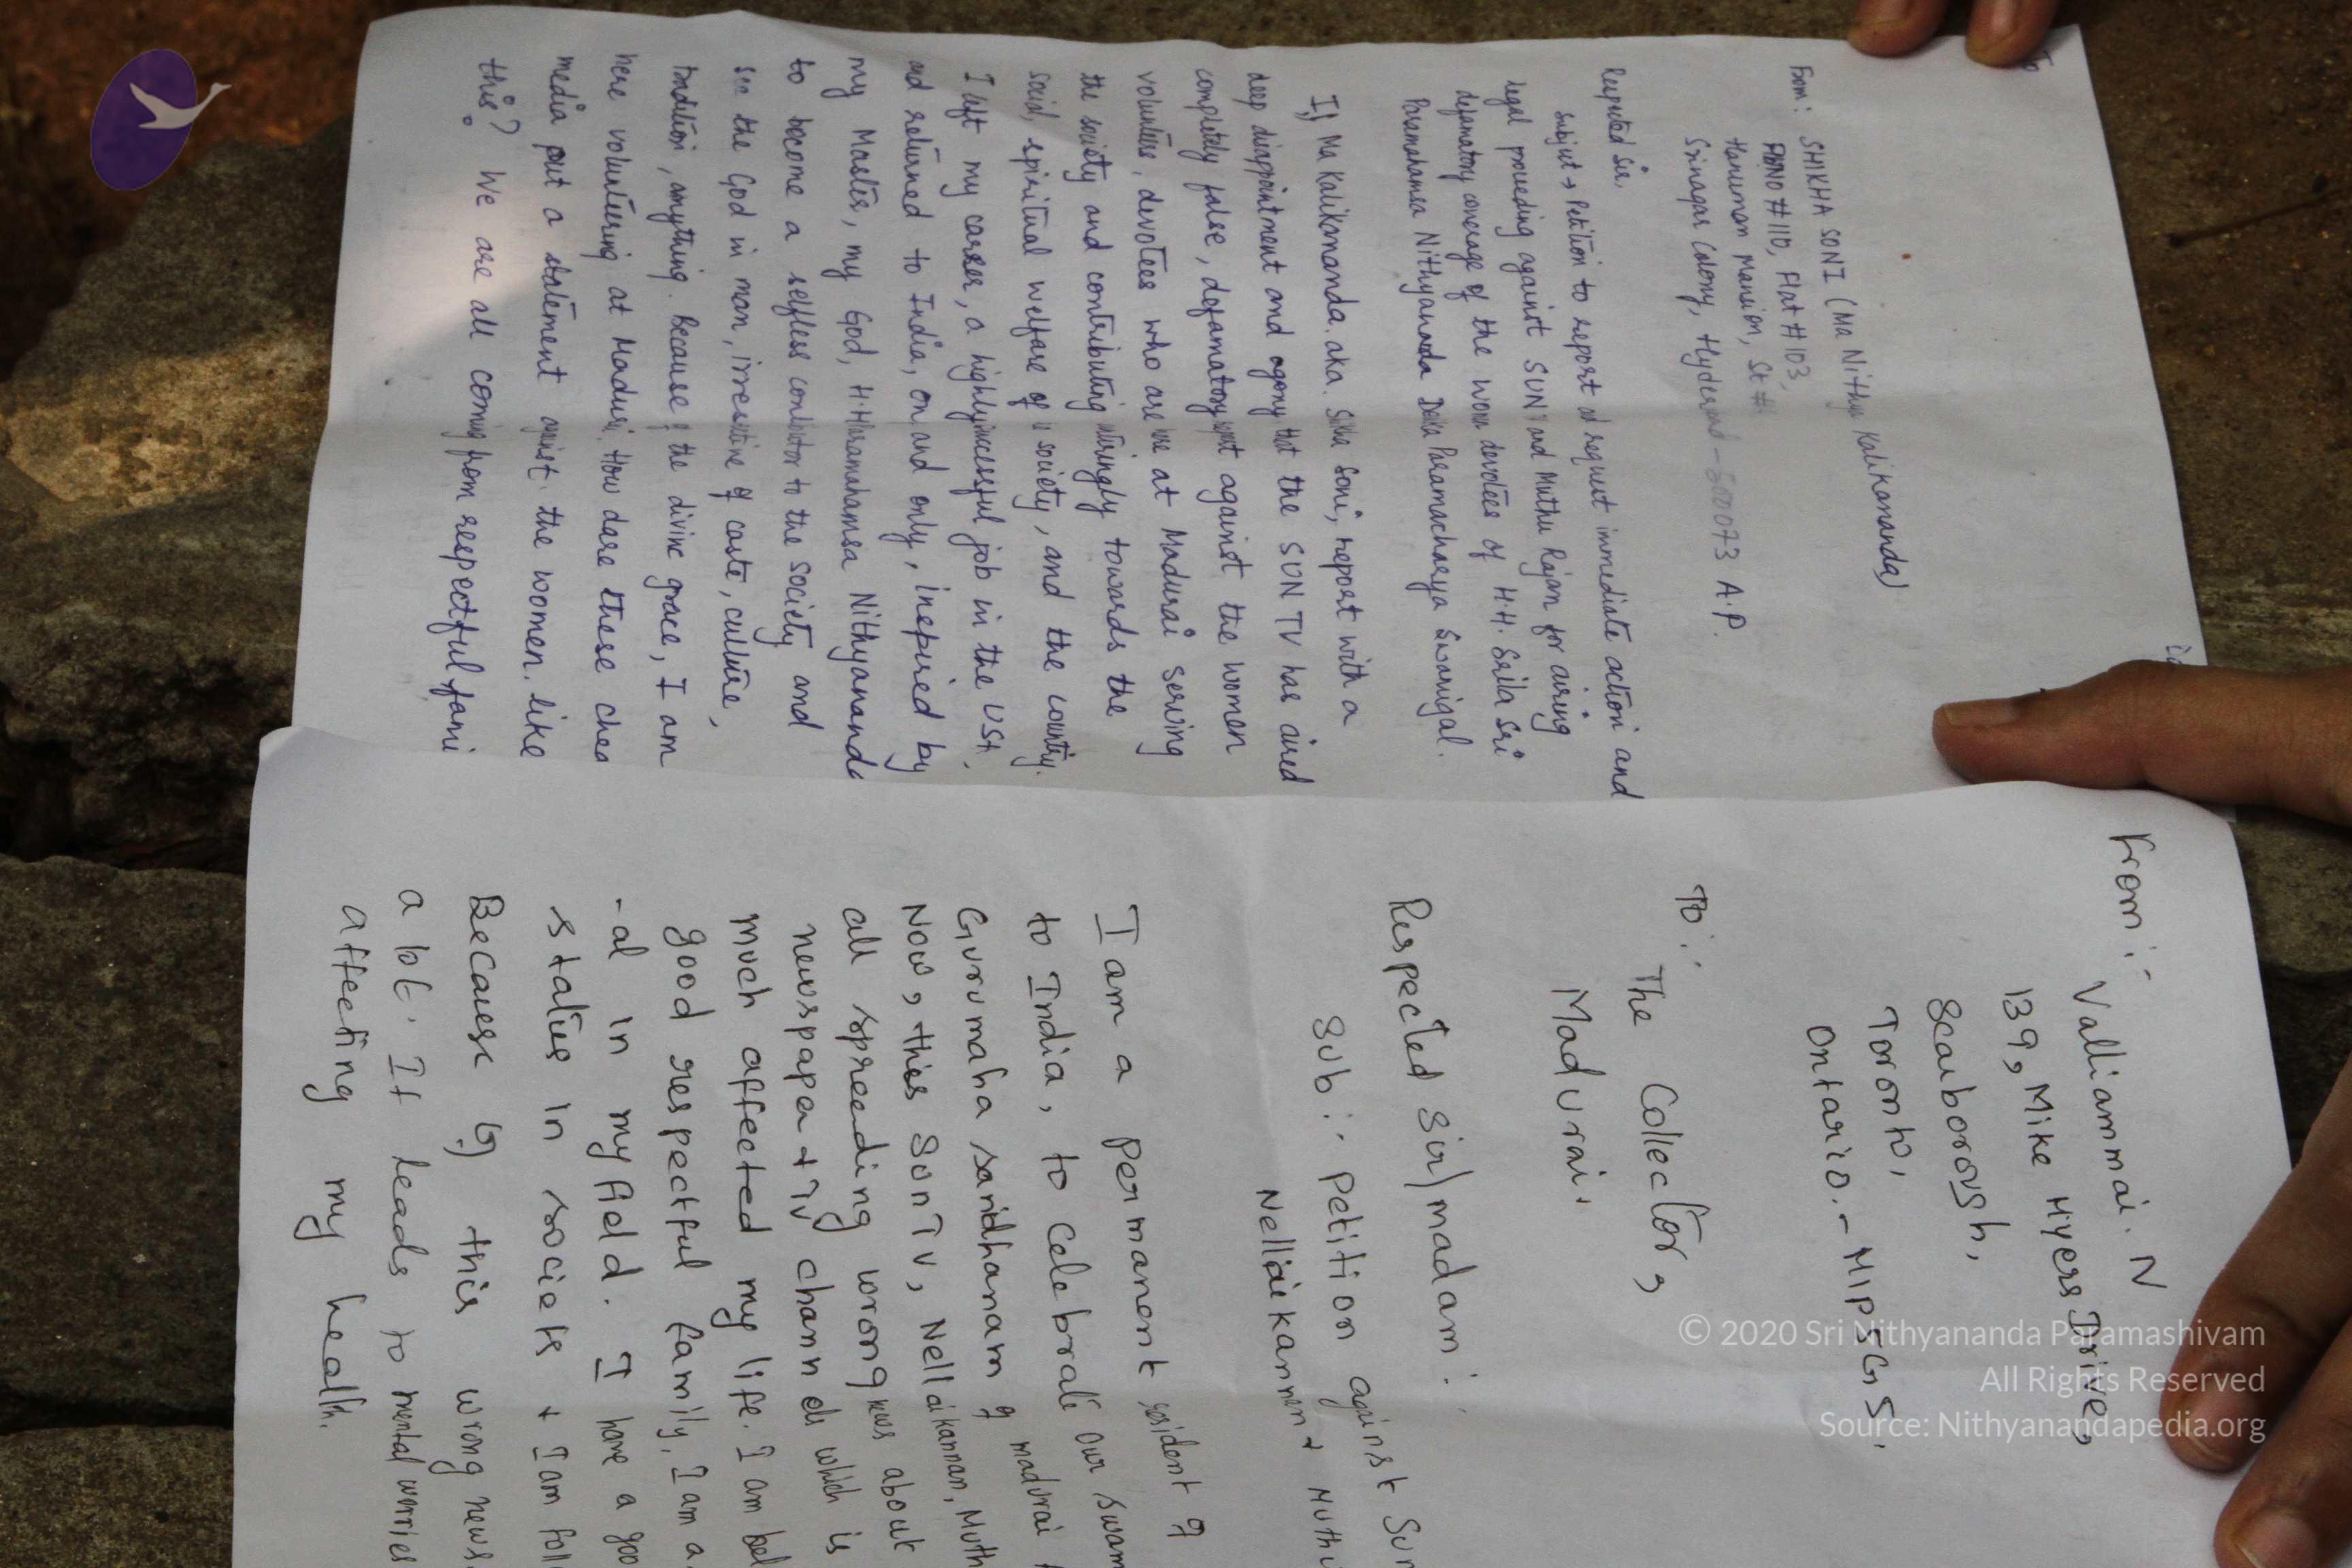 To
From: SHIKHA SONI (Ma Nithya Kalikananda)
#110, Flat #103,
Hanuman Mansion, St #
Srinagar Colony, Hyderabad - 500073 A.P.
Respected Sir,
Subject → Petition to report and request immediate action and
legal proceeding against SUN and Muthu Rajan for airing
defamatory coverage of the women devotees of H.H. Srila Sri
Paramahamsa Nithyananda Desika Paramacharya Swamigal.
I, Ma Kalikananda. aka. Soni, report with a
deep disappointment and agony that the SUN TV has aired
completely false, defamatory against the women
volunteers, devotees who are here at Madurai serving
the society and contributing towards the
social, spiritual welfare of society, and the country.
I left my career, a highly successful job in the USA,
and returned to India, on and only, inspired by
my Master, my God, H.H Paramahamsa Nithyananda
to become a selfless to the society and
see the God in man, of caste, culture,
tradition, anything. Because of the divine grace, I am
here volunteering at Madurai. How dare these cheap
media put a statement against the women. like
this? We are all coming from respectful fami
From:- Valliammai. N
139, Mike Myers Drive,
Scauborough,
Toronto,
Ontario.- MIP 5G5.
To:. The Collector,
Madurai.
Respected Sir/madam:
Sub:. Petition against Sun
Nellaikannan + Muthu
I am a permanent resident of
to India, to celebrate our swam
Gurumaha sanidhanam of madurai
Now, this Sun TV, Nellaikannan, Muth
all spreading wrong news about
newspaper + Tv channels which is
much affected my life. I am bel
good respectful family. I am a
-al in my field. I have a goo
status in society + I am foll
Because of this wrong news.
a lot. It leads to mental worries
affecting my health.
© 2020 Sri Nithyananda Paramashivam
All Rights Reserved
Source: Nithyanandapedia.org